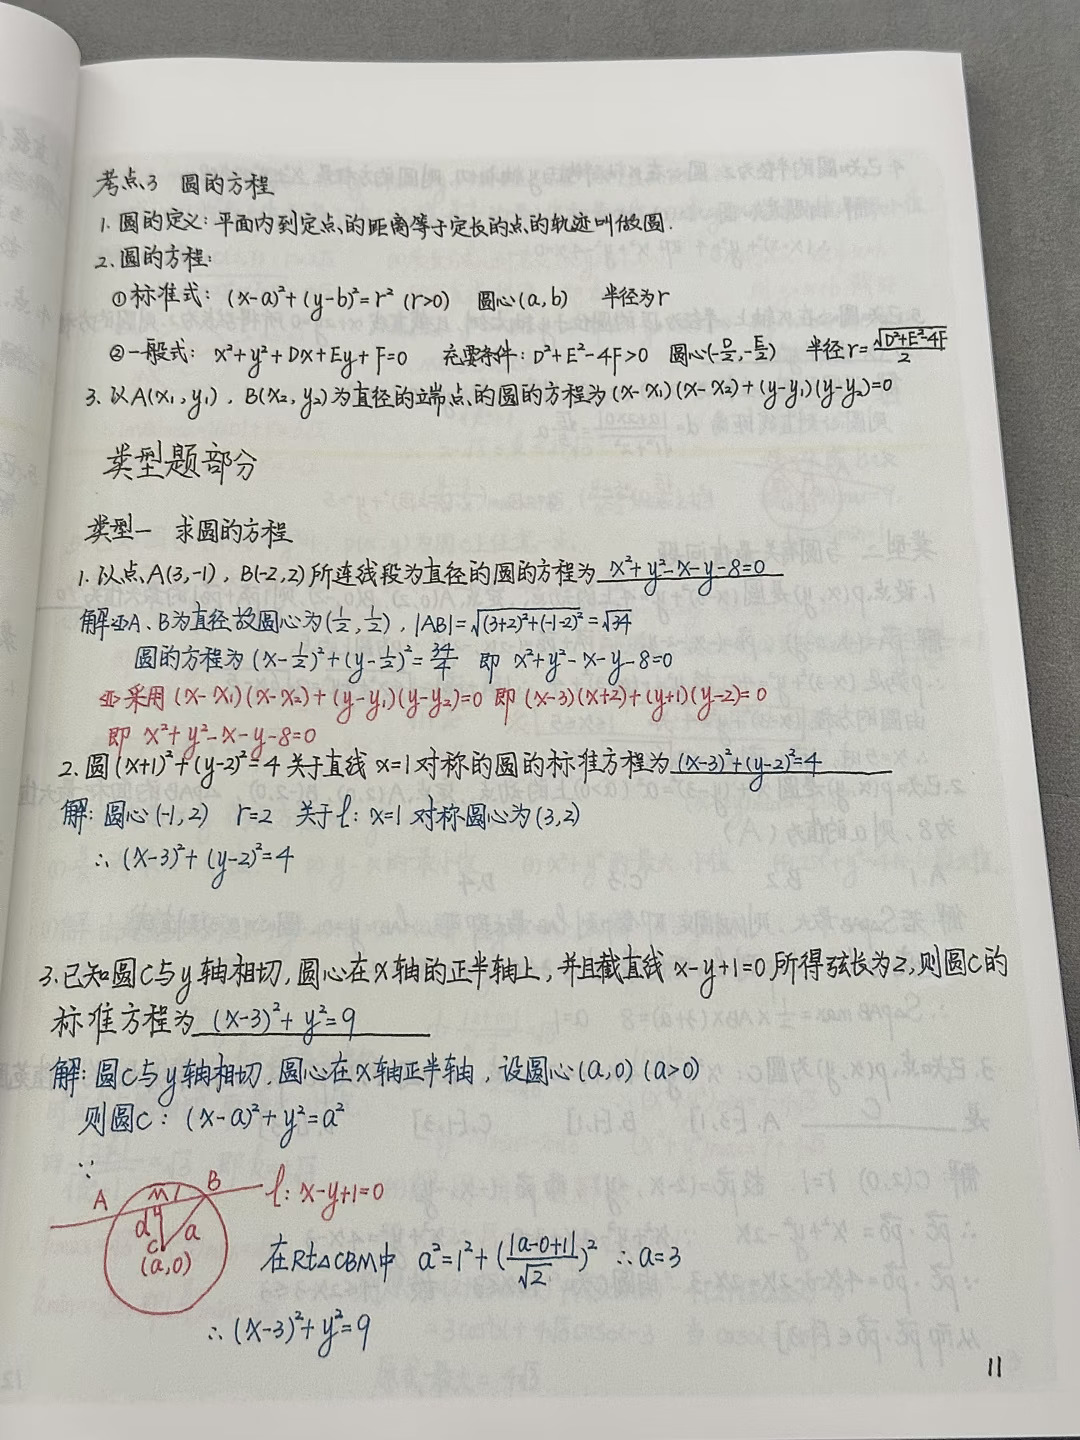 考点3 圆的方程
1. 圆的定义: 平面内到定点的距离等于定长的点的轨迹叫做圆.
2. 圆的方程:
①标准式: (x-a)²+(y-b)²=r² (r>0) 圆心(a,b) 半径为r
②一般式: x²+y²+Dx+Ey+F=0 充要条件: D²+E²-4F>0 圆心(-D/2,-E/2) 半径r=√(D²+E²-4F)/2
3. 以A(x₁,y₁), B(x₂,y₂)为直径的端点的圆的方程为(x-x₁)(x-x₂)+(y-y₁)(y-y₂)=0
类型题部分
类型一 求圆的方程
1. 以点A(3,-1), B(-2,2)所连线段为直径的圆的方程为 x²+y²-x-y-8=0
解 A、B为直径故圆心为(1/2,1/2), |AB|=√((3+2)²+(-1-2)²)=√34
圆的方程为(x-1/2)²+(y-1/2)²=34/4 即 x²+y²-x-y-8=0
采用(x-x₁)(x-x₂)+(y-y₁)(y-y₂)=0 即 (x-3)(x+2)+(y+1)(y-2)=0
即 x²+y²-x-y-8=0
2. 圆(x+1)²+(y-2)²=4关于直线x=1对称的圆的标准方程为 (x-3)²+(y-2)²=4
解: 圆心(-1,2) r=2 关于l: x=1对称圆心为(3,2)
∴(x-3)²+(y-2)²=4
3. 已知圆C与y轴相切,圆心在x轴的正半轴上,并且截直线x-y+1=0所得弦长为2,则圆C的
标准方程为 (x-3)²+y²=9
解: 圆C与y轴相切,圆心在x轴正半轴, 设圆心(a,0) (a>0)
则圆C: (x-a)²+y²=a²
∵
A M 1 B l: x-y+1=0
d a
C
(a,0)
在Rt△CBM中 a²=1²+(|a-0+1|/√2)² ∴a=3
∴(x-3)²+y²=9
11